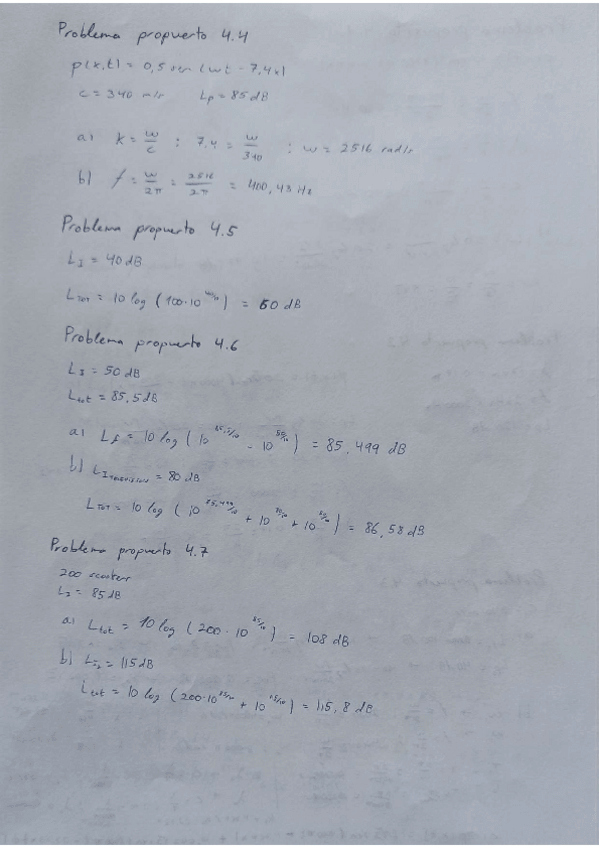 Problema propuerto 4.4
p(x,t) = 0,5 sen (wt - 7,4x)
c = 340 m/s Lp = 85 dB
a) K = w/c ; 7,4 = w/340 ; w = 2516 rad/s
b) f = w/2π = 2516/2π = 400,43 Hz
Problema propuerto 4.5
L1 = 40 dB
Ltot = 10 log (100·10^40/10) = 60 dB
Problema propuerto 4.6
L3 = 50 dB
Ltot = 85,5 dB
a) Lf = 10 log (10^85,5/10 - 10^50/10) = 85,499 dB
b) LITelevision = 80 dB
LTOT = 10 log (10^85,499/10 + 10^80/10 + 10^50/10) = 86,58 dB
Problema propuerto 4.7
200 scooters
L2 = 85 dB
a) Ltot = 10 log (200 · 10^85/10) = 108 dB
b) = 115 dB
Ltot = 10 log (200·10^85/10 + 10^115/10) = 115,8 dB